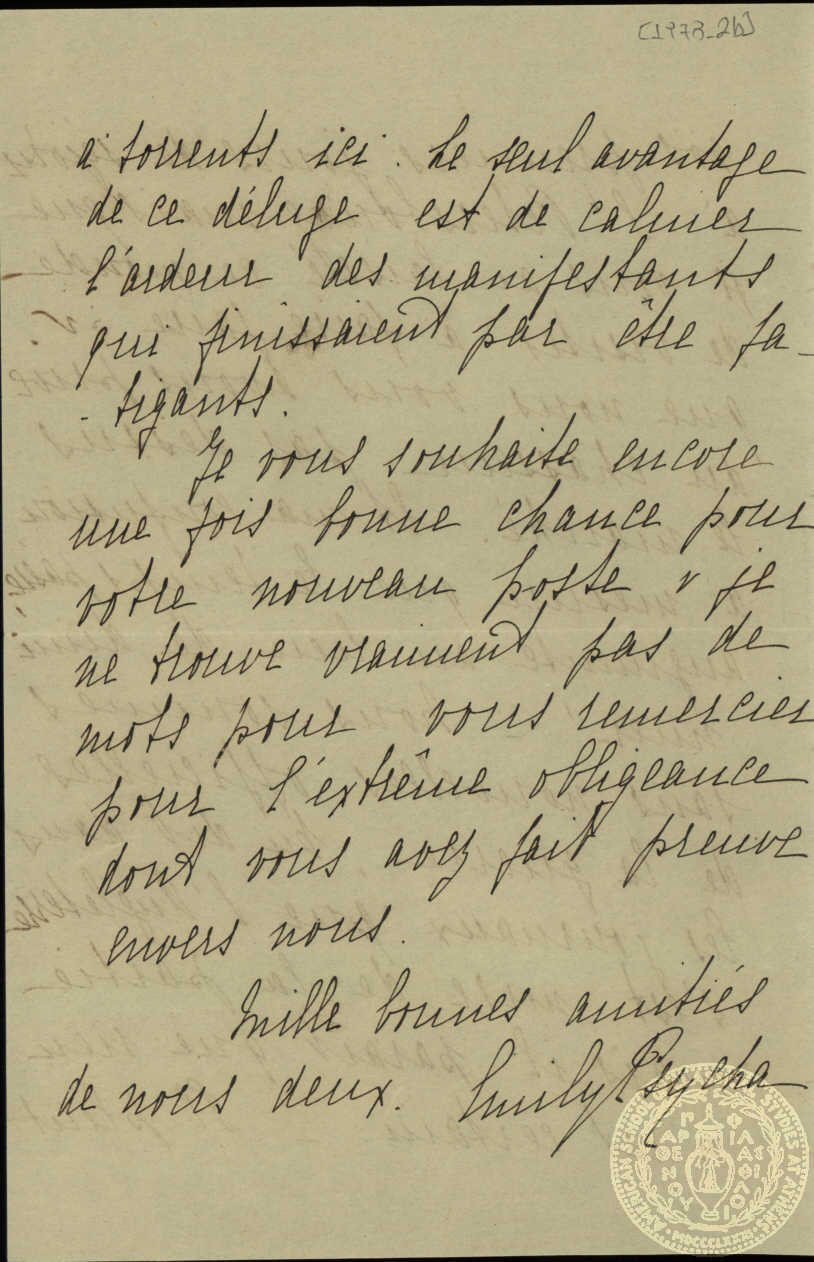 [1973_2b]
à torrents ici. Le seul avantage
de ce déluge est de calmer
l'ardeur des manifestants
qui finissaient par être fa-
-tigants.
Je vous souhaite encore
une fois bonne chance pour
votre nouveau poste & je
ne trouve vraiment pas de
mots pour vous remercier
pour l'extrême obligeance
dont vous avez fait preuve
envers nous.
Mille bonnes amitiés
de nous deux. Emily Psycha
AMERICAN SCHOOL STUDIES AT ATHENS
MDCCCLXXXI